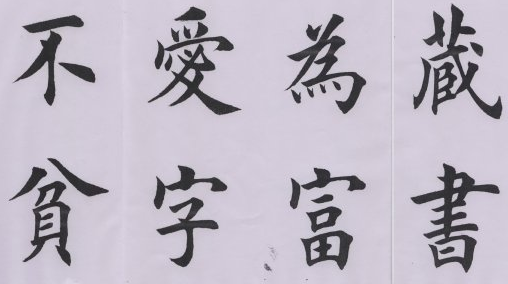 蔵書
為富
愛字
不貧